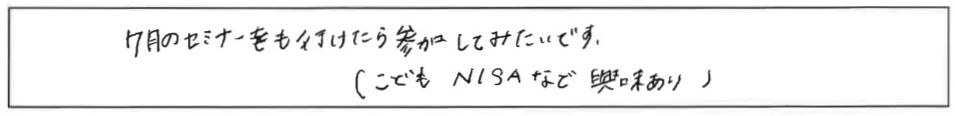 7月のセミナーをも行けたら参加してみたいです.
(こども NISAなど 興味あり)